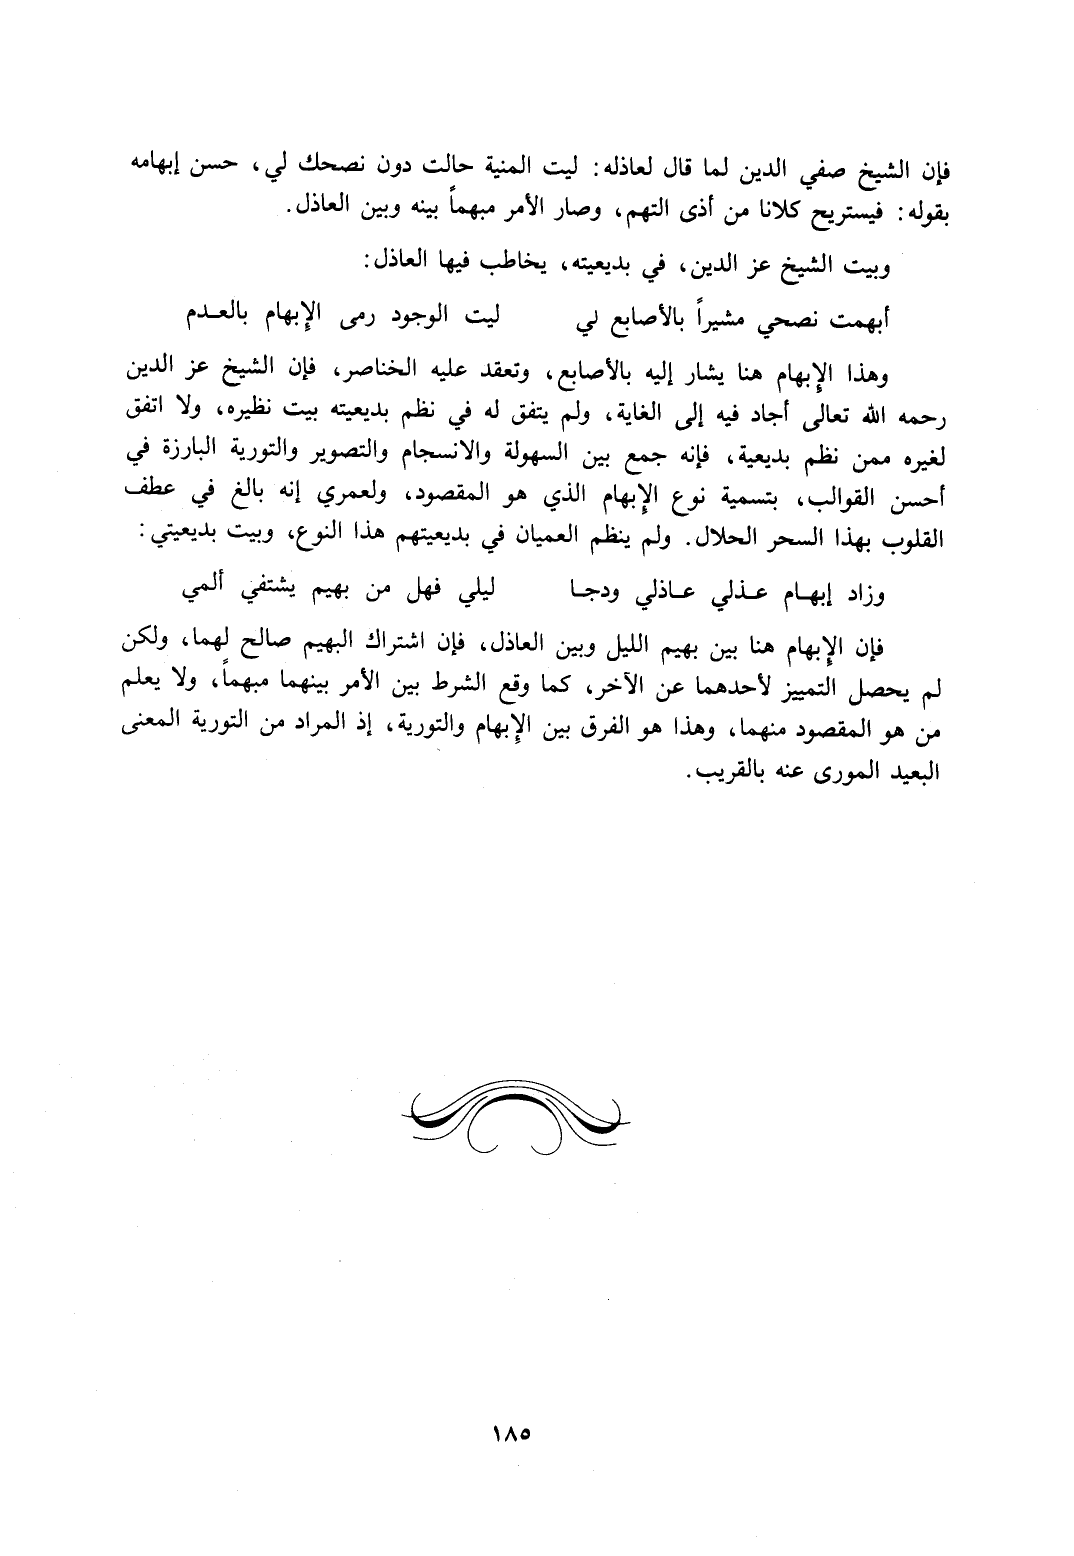 فإن الشيخ صفي الدين لما قال لعاذله: ليت المنية حالت دون نصحك لي، حسن إبهامه
بقوله: فيستريح كلانا من أذى التهم، وصار الأمر مبهماً بينه وبين العاذل.
وبيت الشيخ عز الدين، في بديعيته، يخاطب فيها العاذل:
أبهمت نصحي مشيراً بالأصابع لي ليت الوجود رمى الإبهام بالعـدم
وهذا الإبهام هنا يشار إليه بالأصابع، وتعقد عليه الخناصر، فإن الشيخ عز الدين
رحمه الله تعالى أجاد فيه إلى الغاية، ولم يتفق له في نظم بديعيته بيت نظيره، ولا اتفق
لغيره ممن نظم بديعية، فإنه جمع بين السهولة والانسجام والتصوير والتورية البارزة في
أحسن القوالب، بتسمية نوع الإبهام الذي هو المقصود، ولعمري إنه بالغ في عطف
القلوب بهذا السحر الحلال. ولم ينظم العميان في بديعيتهم هذا النوع، وبيت بديعيتي:
وزاد إبهـام عـذلي عـاذلي ودجـا ليلي فهل من بهيم يشتفي ألمي
فإن الإبهام هنا بين بهيم الليل وبين العاذل، فإن اشتراك البهيم صالح لهما، ولكن
لم يحصل التمييز لأحدهما عن الآخر، كما وقع الشرط بين الأمر بينهما مبهماً، ولا يعلم
من هو المقصود منهما، وهذا هو الفرق بين الإبهام والتورية، إذ المراد من التورية المعنى
البعيد المورى عنه بالقريب.
١٨٥